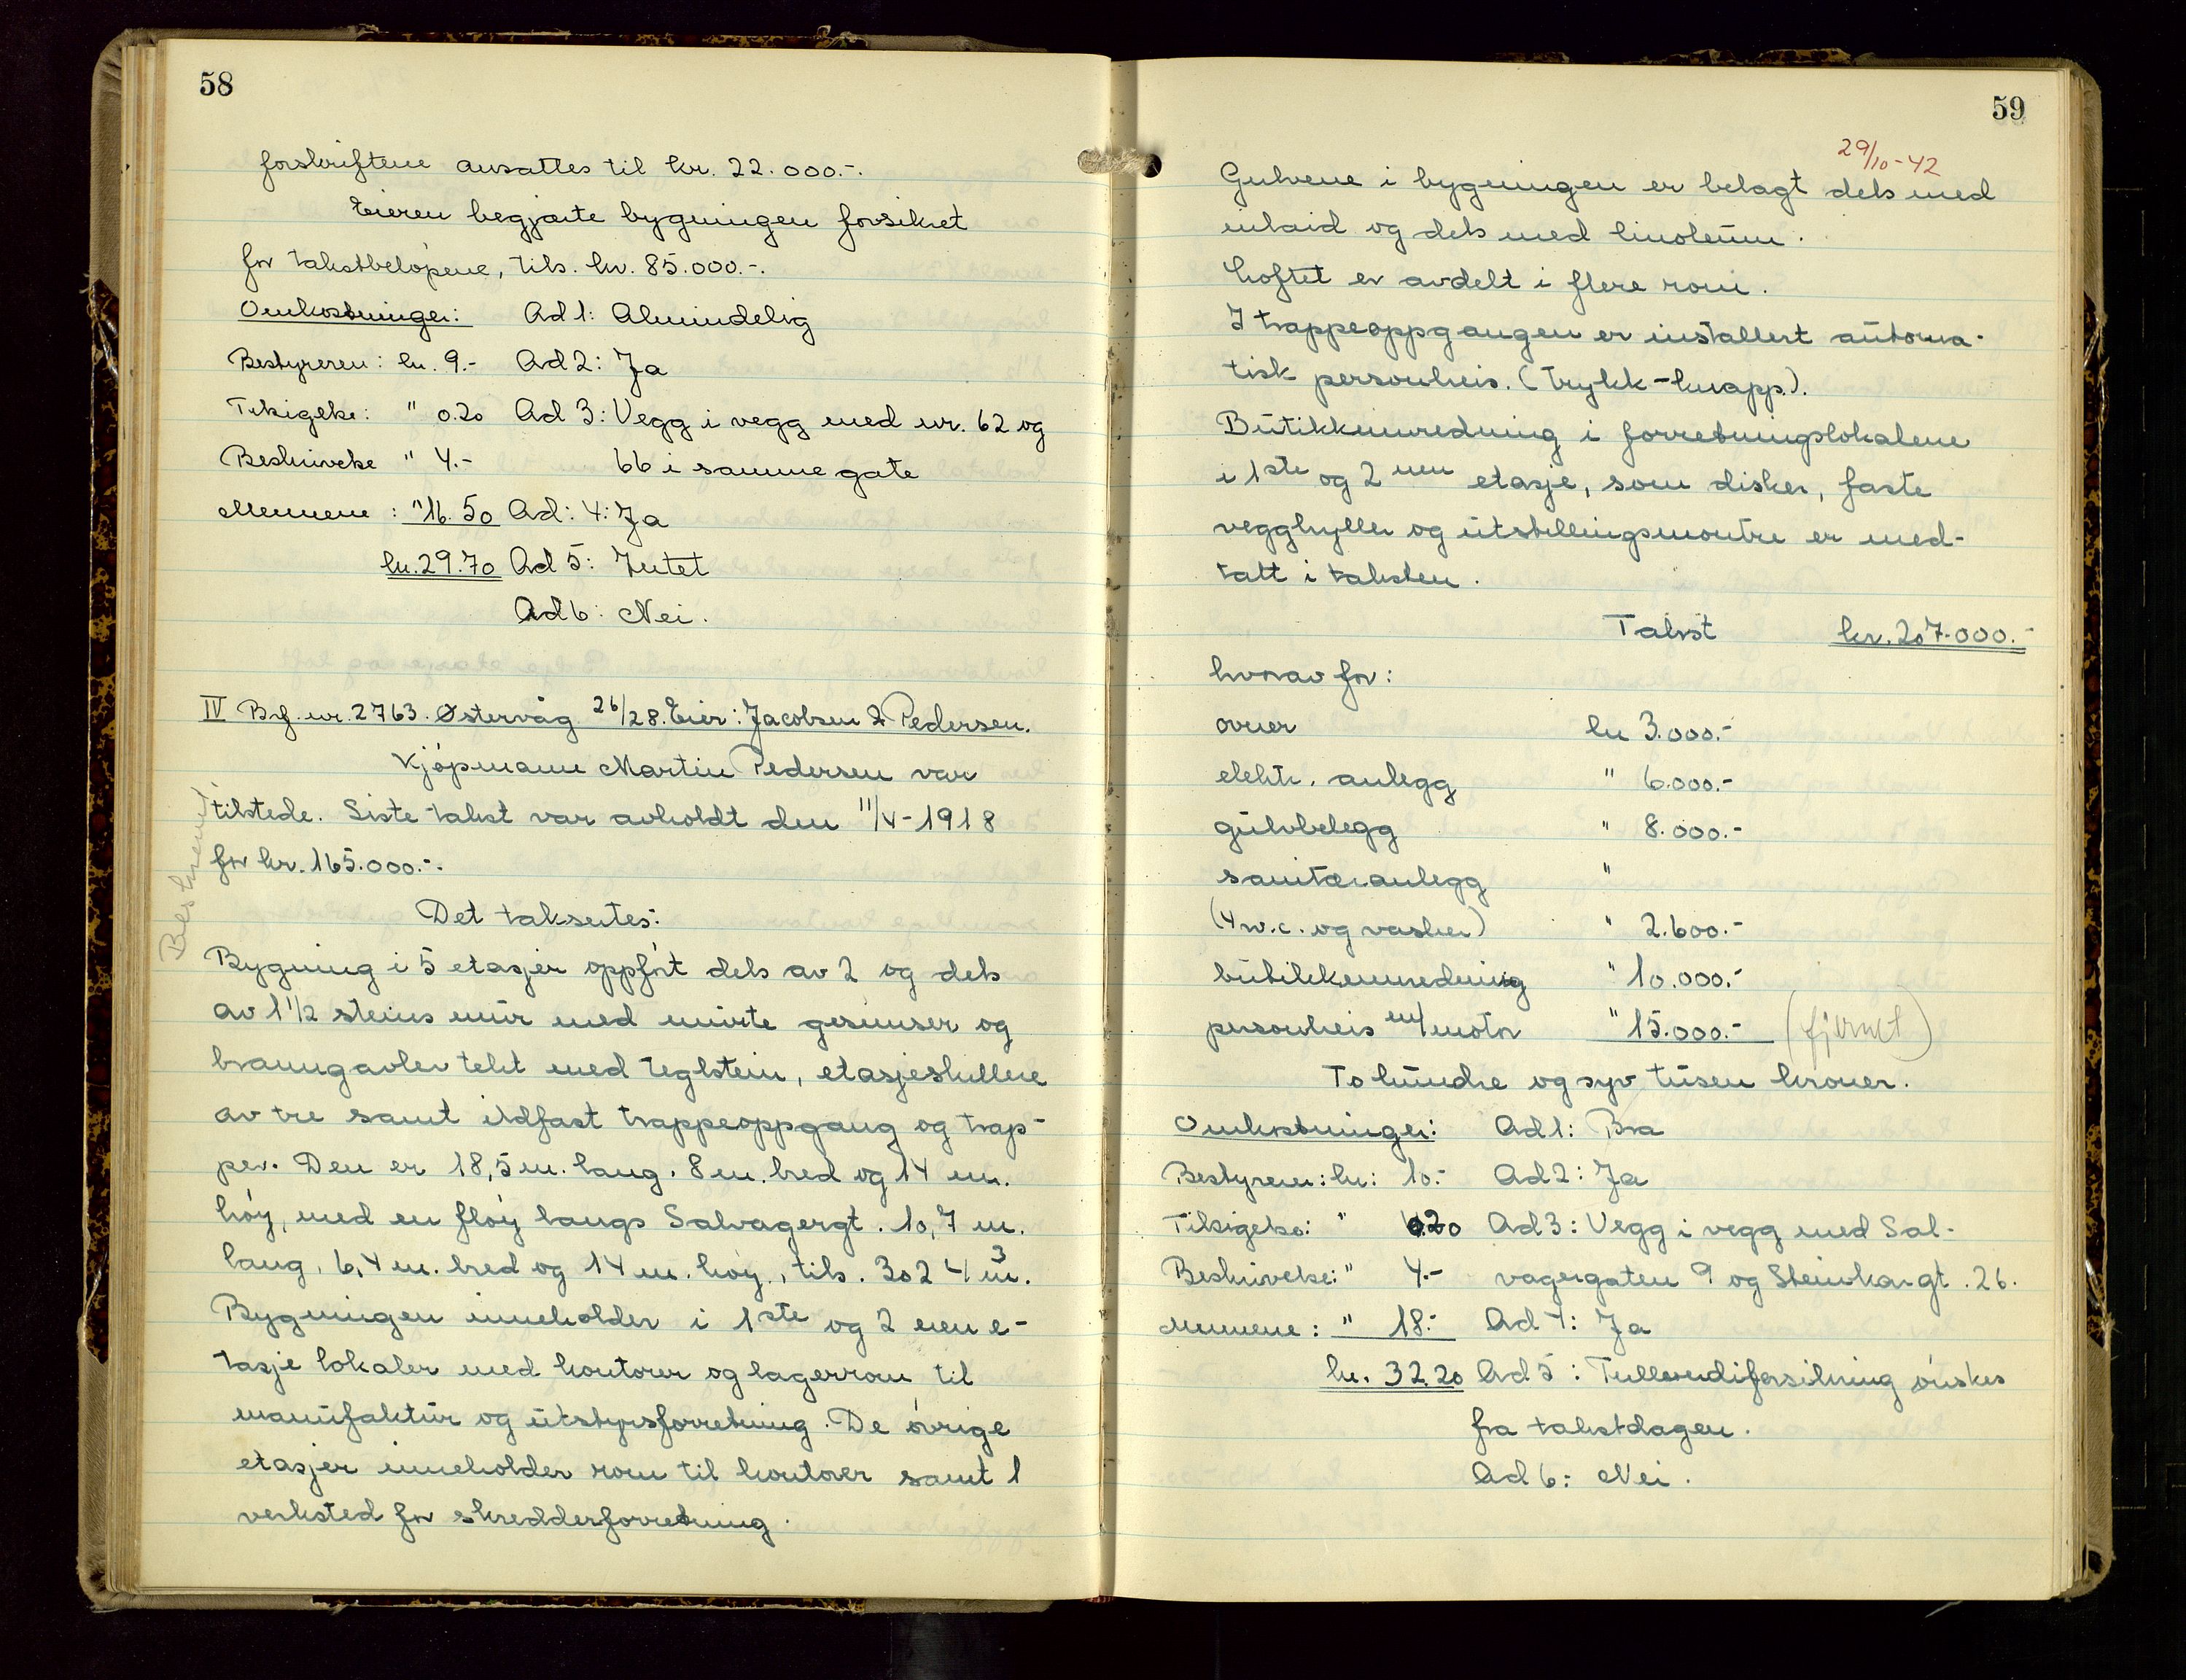 58
forskriftene ansattes til kr. 22.000.-.
Eieren begjærte bygningen forsikret
for takstbeløpene, tils. kr. 85.000.-.
Omkostninger: Ad 1: Almindelig
Bestyreren: kr. 9.- Ad 2: Ja
Tilsigelse: " 0.20 Ad 3: Vegg i vegg med nr. 62 og
Beskrivelse " 4.- 66 i samme gate
Mennene: " 16.50 Ad: 4: Ja
kr. 29.70 Ad 5: Intet
Ad 6: Nei.
IV Brf. nr. 2763. Østervåg 26/28. Eier: Jacobsen & Pedersen.
Kjøpmann Martin Pedersen var
tilstede. Siste takst var avholdt den 11/4-1918
for kr. 165.000.-.
Det takseres:
Bygning i 5 etasjer oppført dels av 2 og dels
av 1 1/2 steins mur med murte gesimser og
branngavler tekt med teglstein, etasjeskillere
av tre samt ildfast trappeoppgang og trap-
per. Den er 18,5 m. lang. 8 m. bred og 14 m.
høy, med en fløy langs Salvagergt. 10,7 m.
lang, 6,4 m. bred og 14 m. høy., tils. 3024 m³.
Bygningen inneholder i 1ste og 2nen e-
tasje lokaler med kontorer og lagerrom til
manufaktur og utstyrsforretning. De øvrige
etasjer inneholder rom til kontorer samt 1
verksted for skredderforretning.
59
29/10-42
Gulvene i bygningen er belagt dels med
inlaid og dels med linoleum.
Loftet er avdelt i flere rom.
I trappeoppgangen er installert automa-
tisk personheis. (Trykk-knapp).
Butikkinnredning i forretningslokalene
i 1ste og 2nen etasje, som disker, faste
vegghyller og utstillingsmontre er med-
tatt i taksten.
Takst kr. 207.000.-
hvorav for:
ovner kr 3.000.-
elektr. anlegg " 6.000.-
gulvbelegg " 8.000.-
sanitæranlegg "
(4 w.c. og vasker) " 2.600.-
butikkinnredning " 10.000.-
personheis m/motor " 15.000.- (fjernet)
To hundre og syv tusen kroner.
Omkostninger: Ad 1: Bra
Bestyreren: kr: 10.- Ad 2: Ja
Tilsigelse: " 0.20 Ad 3: Vegg i vegg med Sal-
Beskrivelse: " 4.- vagergaten 9 og Steinkargt. 26.
Mennene: " 18.- Ad 4: Ja
kr. 32.20 Ad 5: Fullverdiforsikring ønskes
fra takstdagen.
Ad 6: Nei.